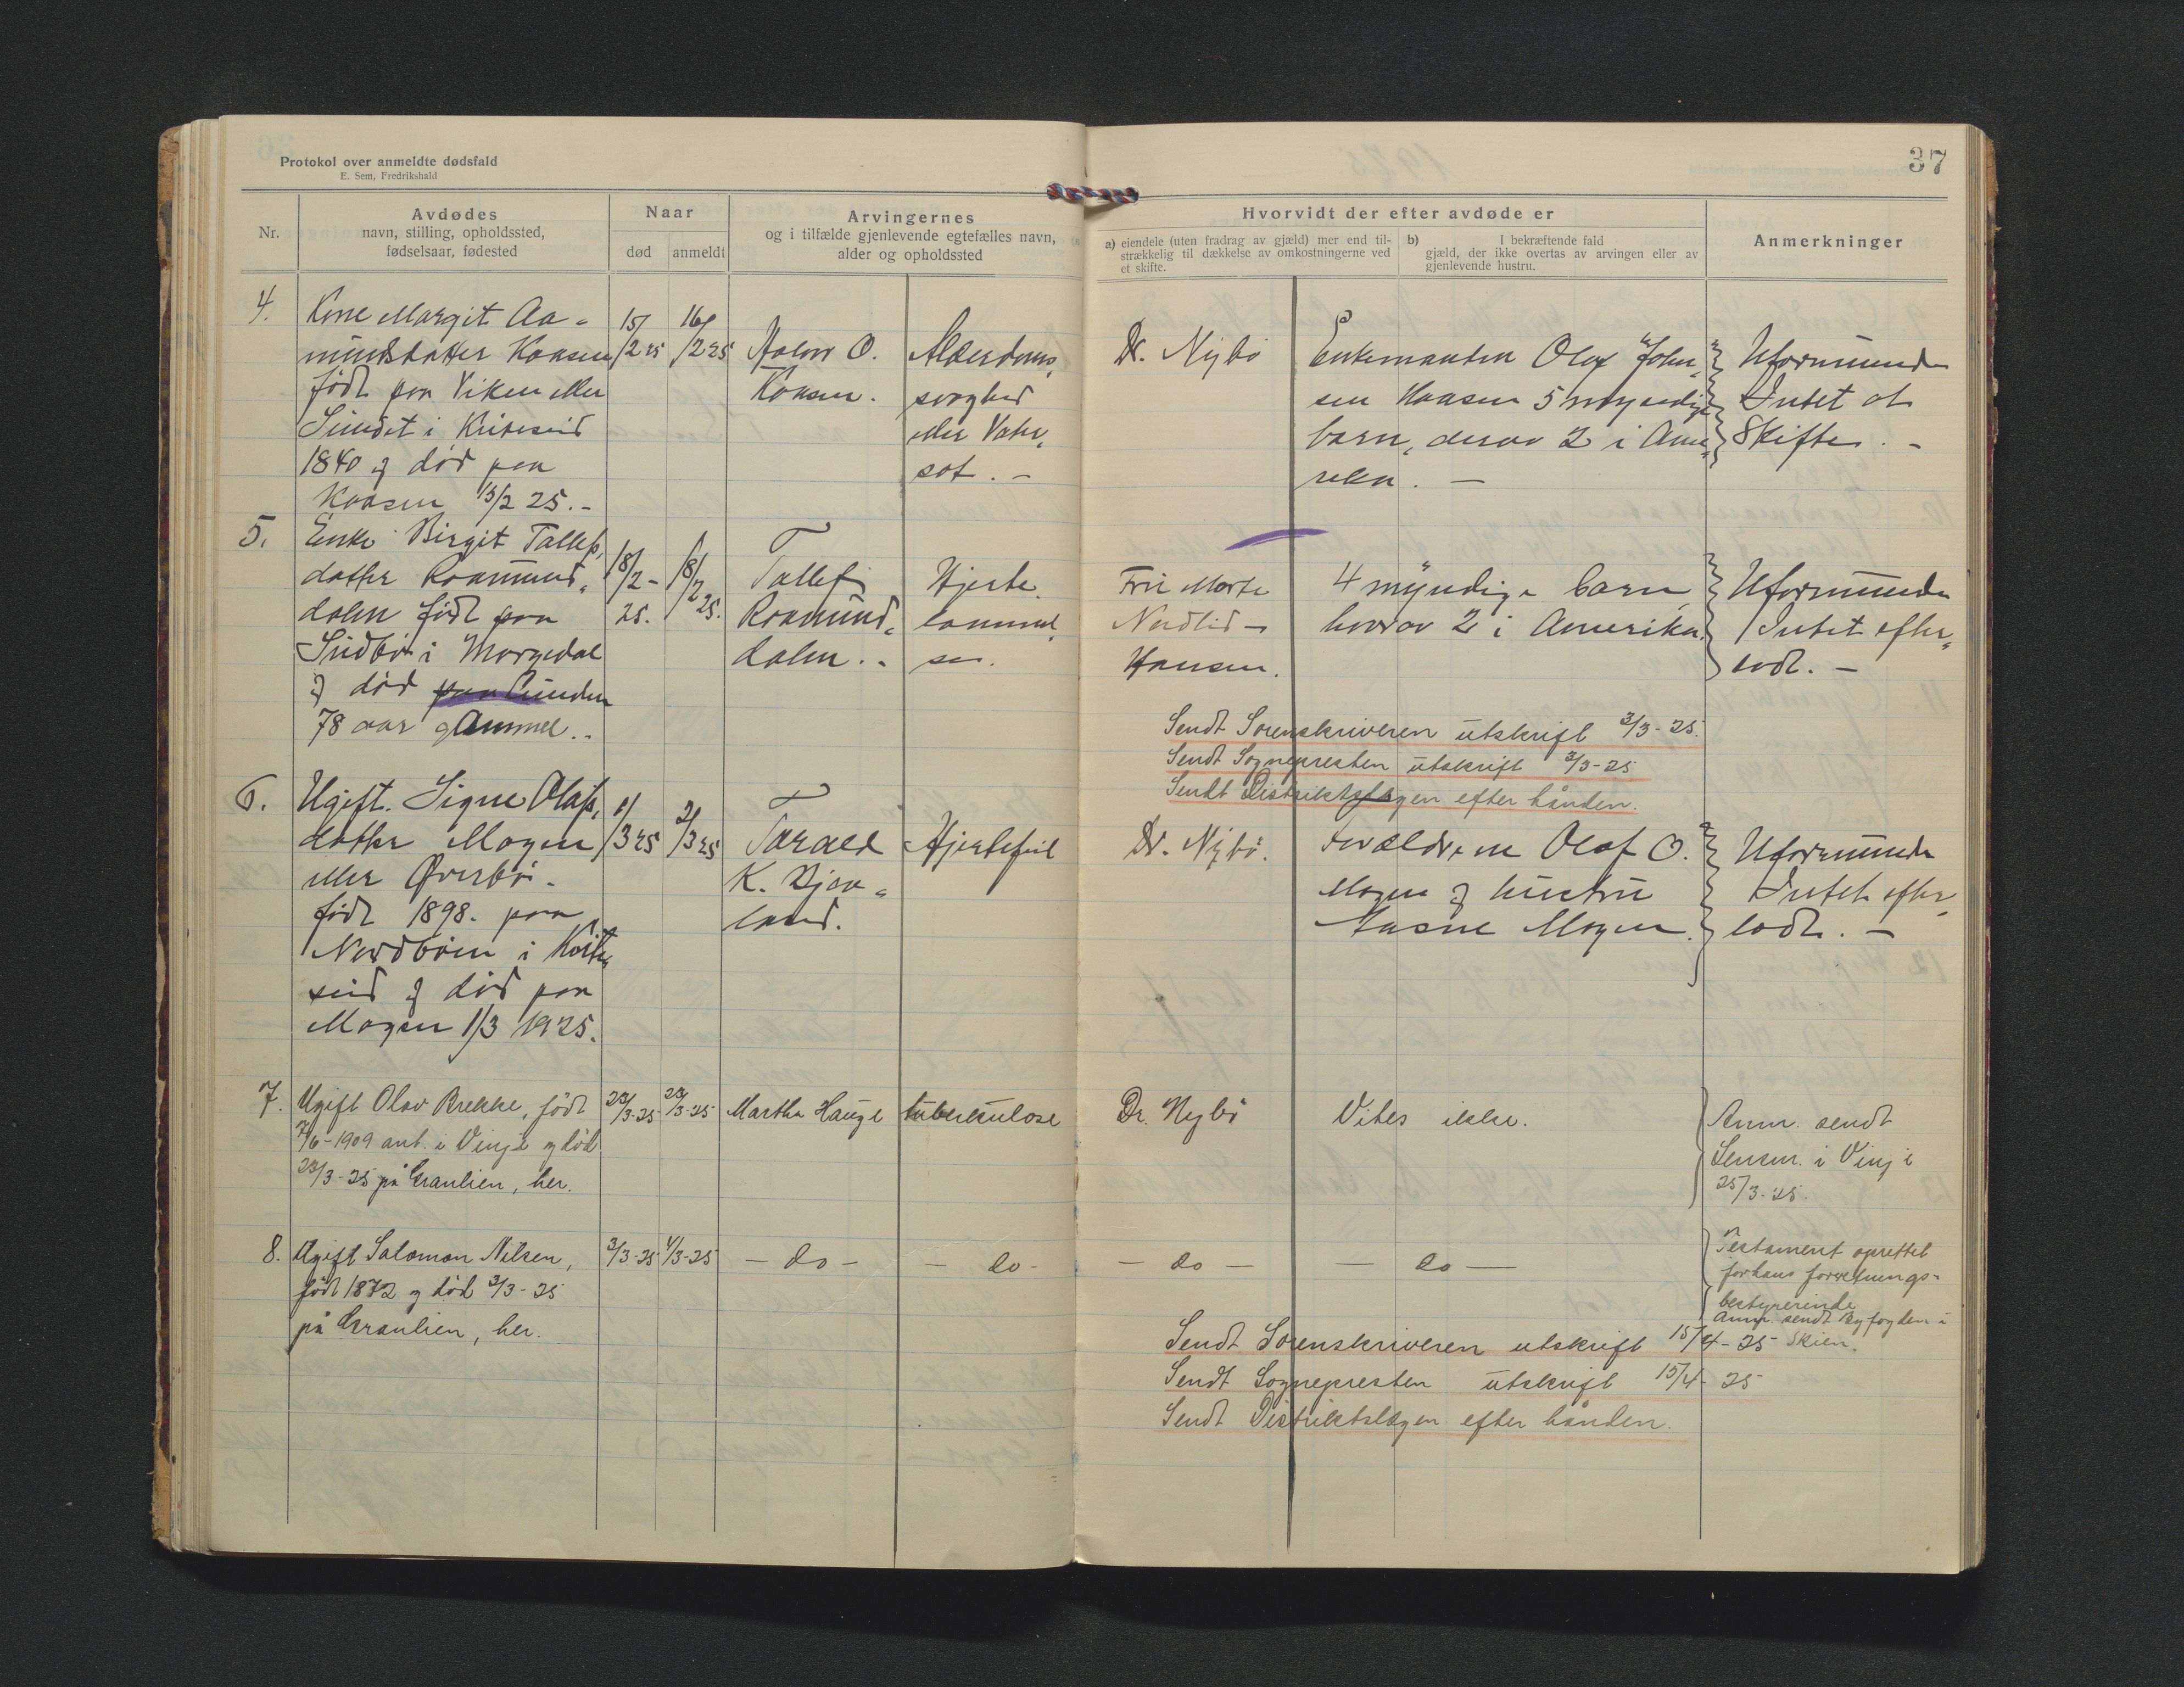 Protokol over anmeldte dødsfald
E. Sem, Fredrikshald
37
Nr.
Avdødes
navn, stilling, opholdssted,
fødselsaar, fødested
Naar
død
anmeldt
Arvingernes
og i tilfælde gjenlevende egtefælles navn,
alder og opholdssted
Hvorvidt der efter avdøde er
a) eiendele (uten fradrag av gjæld) mer end til-
strækkelig til dækkelse av omkostningerne ved
et skifte.
b) I bekræftende fald
gjæld, der ikke overtas av arvingen eller av
gjenlevende hustru.
Anmerkninger
4.
Kone Margit Aa-
mundsdatter Kaasen
født paa Viken eller
Sundet i Kviteseid
1840 og død paa
Kaasen 15/2 25.-
15/2 25
16/2 25
Halvor O.
Kaasen.
Alderdoms-
svaghed
eller Vater-
sot. -
Dr. Nybø
Enkemanden Olaf John-
sen Kaasen 5 myndige
barn, derav 2 i Ame-
rika. -
Uformuende
Intet at
Skifte. -
5.
Enke Birgit Tallefs-
datter Roamund-
dalen født paa
Sudbø i Morgedal
og død
78 aar gammel..
18/2-
25.
18/2 25.
Tallef
Roamund-
dalen..
Hjerte-
lammel-
se.
Fru Marta
Nordlid -
Hansen.
4 myndige barn,
hvorav 2 i Amerika.
Uformuende
Intet efter-
lodt. -
Sendt Sorenskriveren utskrift 3/3-25.
Sendt Sognepresten utskrift 3/3-25
Sendt Distriktslægen efter hånden.
6.
Ugift. Signe Olafs-
datter Mogen
eller Øverbø.
født 1898. paa
Nordbøen i Kvite-
seid og død paa
Mogen 1/3 1925.
1/3 25
2/3 25
Tarald
K.
land.
Hjertefeil
Dr. Nybø.
Forældrene Olaf O.
Mogen og hustru
Aasne Mogen.
Uformuende
Intet efter-
lodt. -
7.
Ugift Olav Brekke, født
7/6-1909 ant. i Vinje og død
23/3-25 på Granlien, her.
23/3-25
23/3-25
Martha Hauge
tuberkulose
Dr. Nybø
Vites ikke.
Anm. sendt
Lensm. i Vinje
25/3-25.
8.
Ugift Salomon Nilsen,
født 1872 og død 3/3-25
på Granlien, her.
3/3-25
4/3-25
- do -
- do -
- do -
- do -
Testament oprettet
for hans forretnings-
bestyrerinde
Anm. sendt Byfogden i
Skien.
Sendt Sorenskriveren utskrift 15/4-25
Sendt Sognepresten utskrift 15/4-25
Sendt Distriktslægen efter hånden.